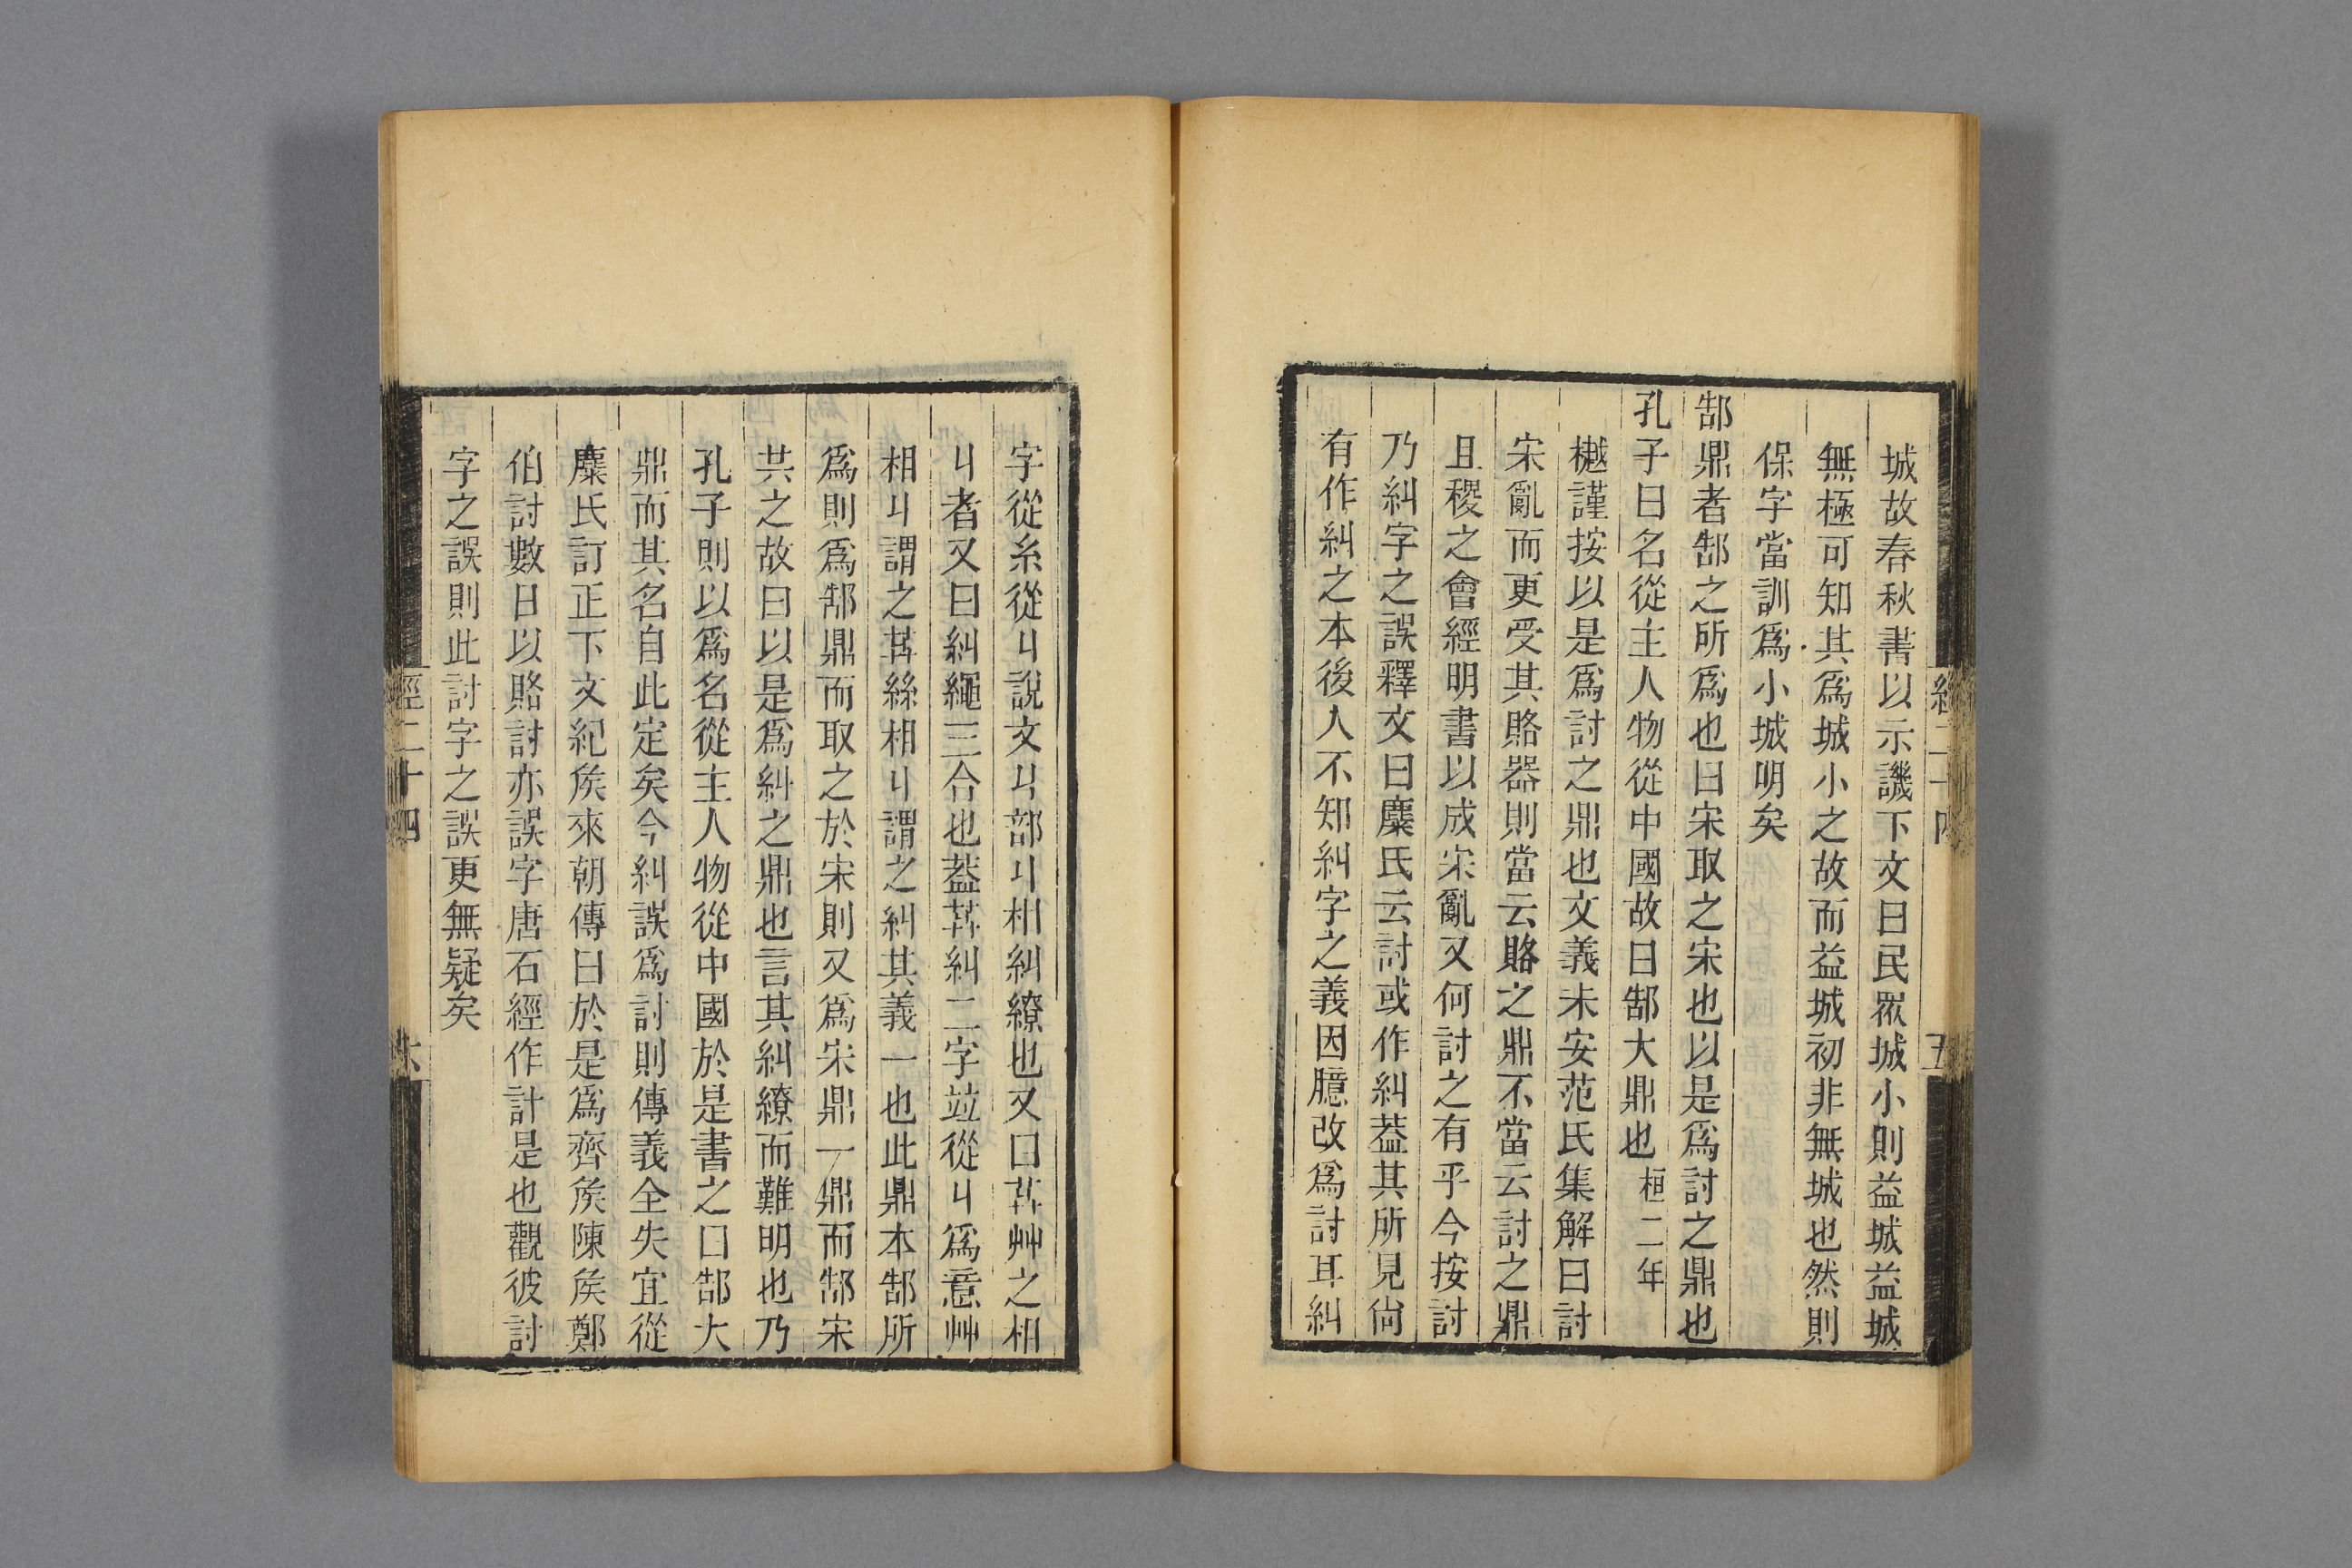 城故春秋書以示譏下文曰民眾城小則益城益城
無極可知其爲城小之故而益城初非無城也然則
保字當訓爲小城明矣
郜鼎者郜之所爲也曰宋取之宋也以是爲討之鼎也
孔子曰名從主人物從中國故曰郜大鼎也桓二年
樾謹按以是爲討之鼎也文義未安范氏集解曰討
宋亂而更受其賂器則當云賂之鼎不當云討之鼎
且稷之會經明書以成宋亂又何討之有乎今按討
乃糾字之誤釋文曰麋氏云討或作糾葢其所見尙
有作糾之本後人不知糾字之義因臆改爲討耳糾
經二十四
五
字從糸從丩說文丩部丩相糾繚也又曰茻艸之相
丩者又曰糾繩三合也葢茻糾二字竝從丩爲意艸
相丩謂之茻絲相丩謂之糾其義一也此鼎本郜所
爲則爲郜鼎而取之於宋則又爲宋鼎一鼎而郜宋
共之故曰以是爲糾之鼎也言其糾繚而難明也乃
孔子則以爲名從主人物從中國於是書之曰郜大
鼎而其名自此定矣今糾誤爲討則傳義全失宜從
麋氏訂正下文紀矦來朝傳曰於是爲齊矦陳矦鄭
伯討數日以賂討亦誤字唐石經作計是也觀彼討
字之誤則此討字之誤更無疑矣
經二十四
六